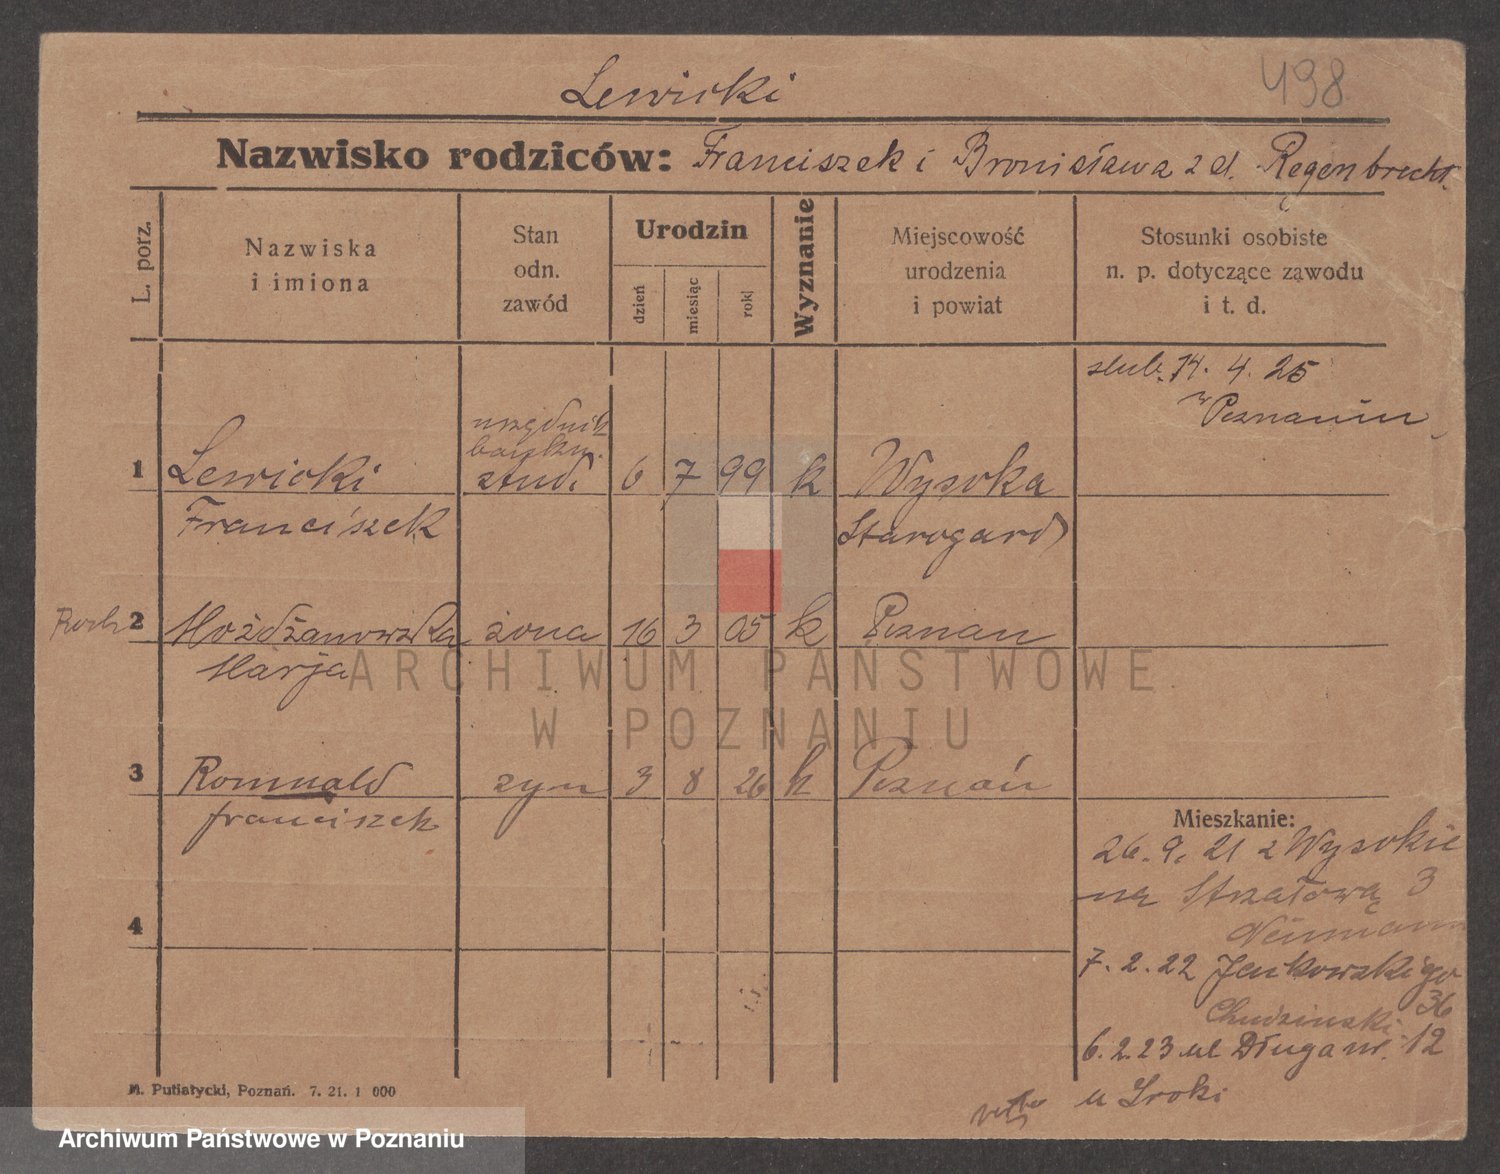 Lewicki
498
Nazwisko rodziców: Franciszek i Bronisława z d. Regenbrecht.
L. porz.
Nazwiska
i imiona
Stan
odn.
zawód
Urodzin
dzień
miesiąc
rok
Wyznanie
Miejscowość
urodzenia
i powiat
Stosunki osobiste
n. p. dotyczące zawodu
i t. d.
slub. 14. 4. 25
w Poznaniu
urzędnik
bankw.
1 Lewicki stud. 6 7 99 k Wysoka
Franciszek Starogard
2 Hożdżanowska żona 16 3 05 k Poznan
Marja
3 Romuald syn 3 8 26 k Poznań
franciszek
4
Mieszkanie:
26. 9. 21 z Wysokie
na Strzałową 3
7. 2. 22 Jenkowskiego
36
Chudzinski
6. 2. 23 ul Długa nr. 12
u Sroki
M. Putiatycki, Poznań. 7. 21. 1 000
ARCHIWUM PAŃSTWOWE
W POZNANIU
Archiwum Państwowe w Poznaniu